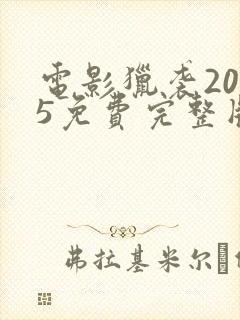 電影獵袭20
5免費完整
弗拉基米尔